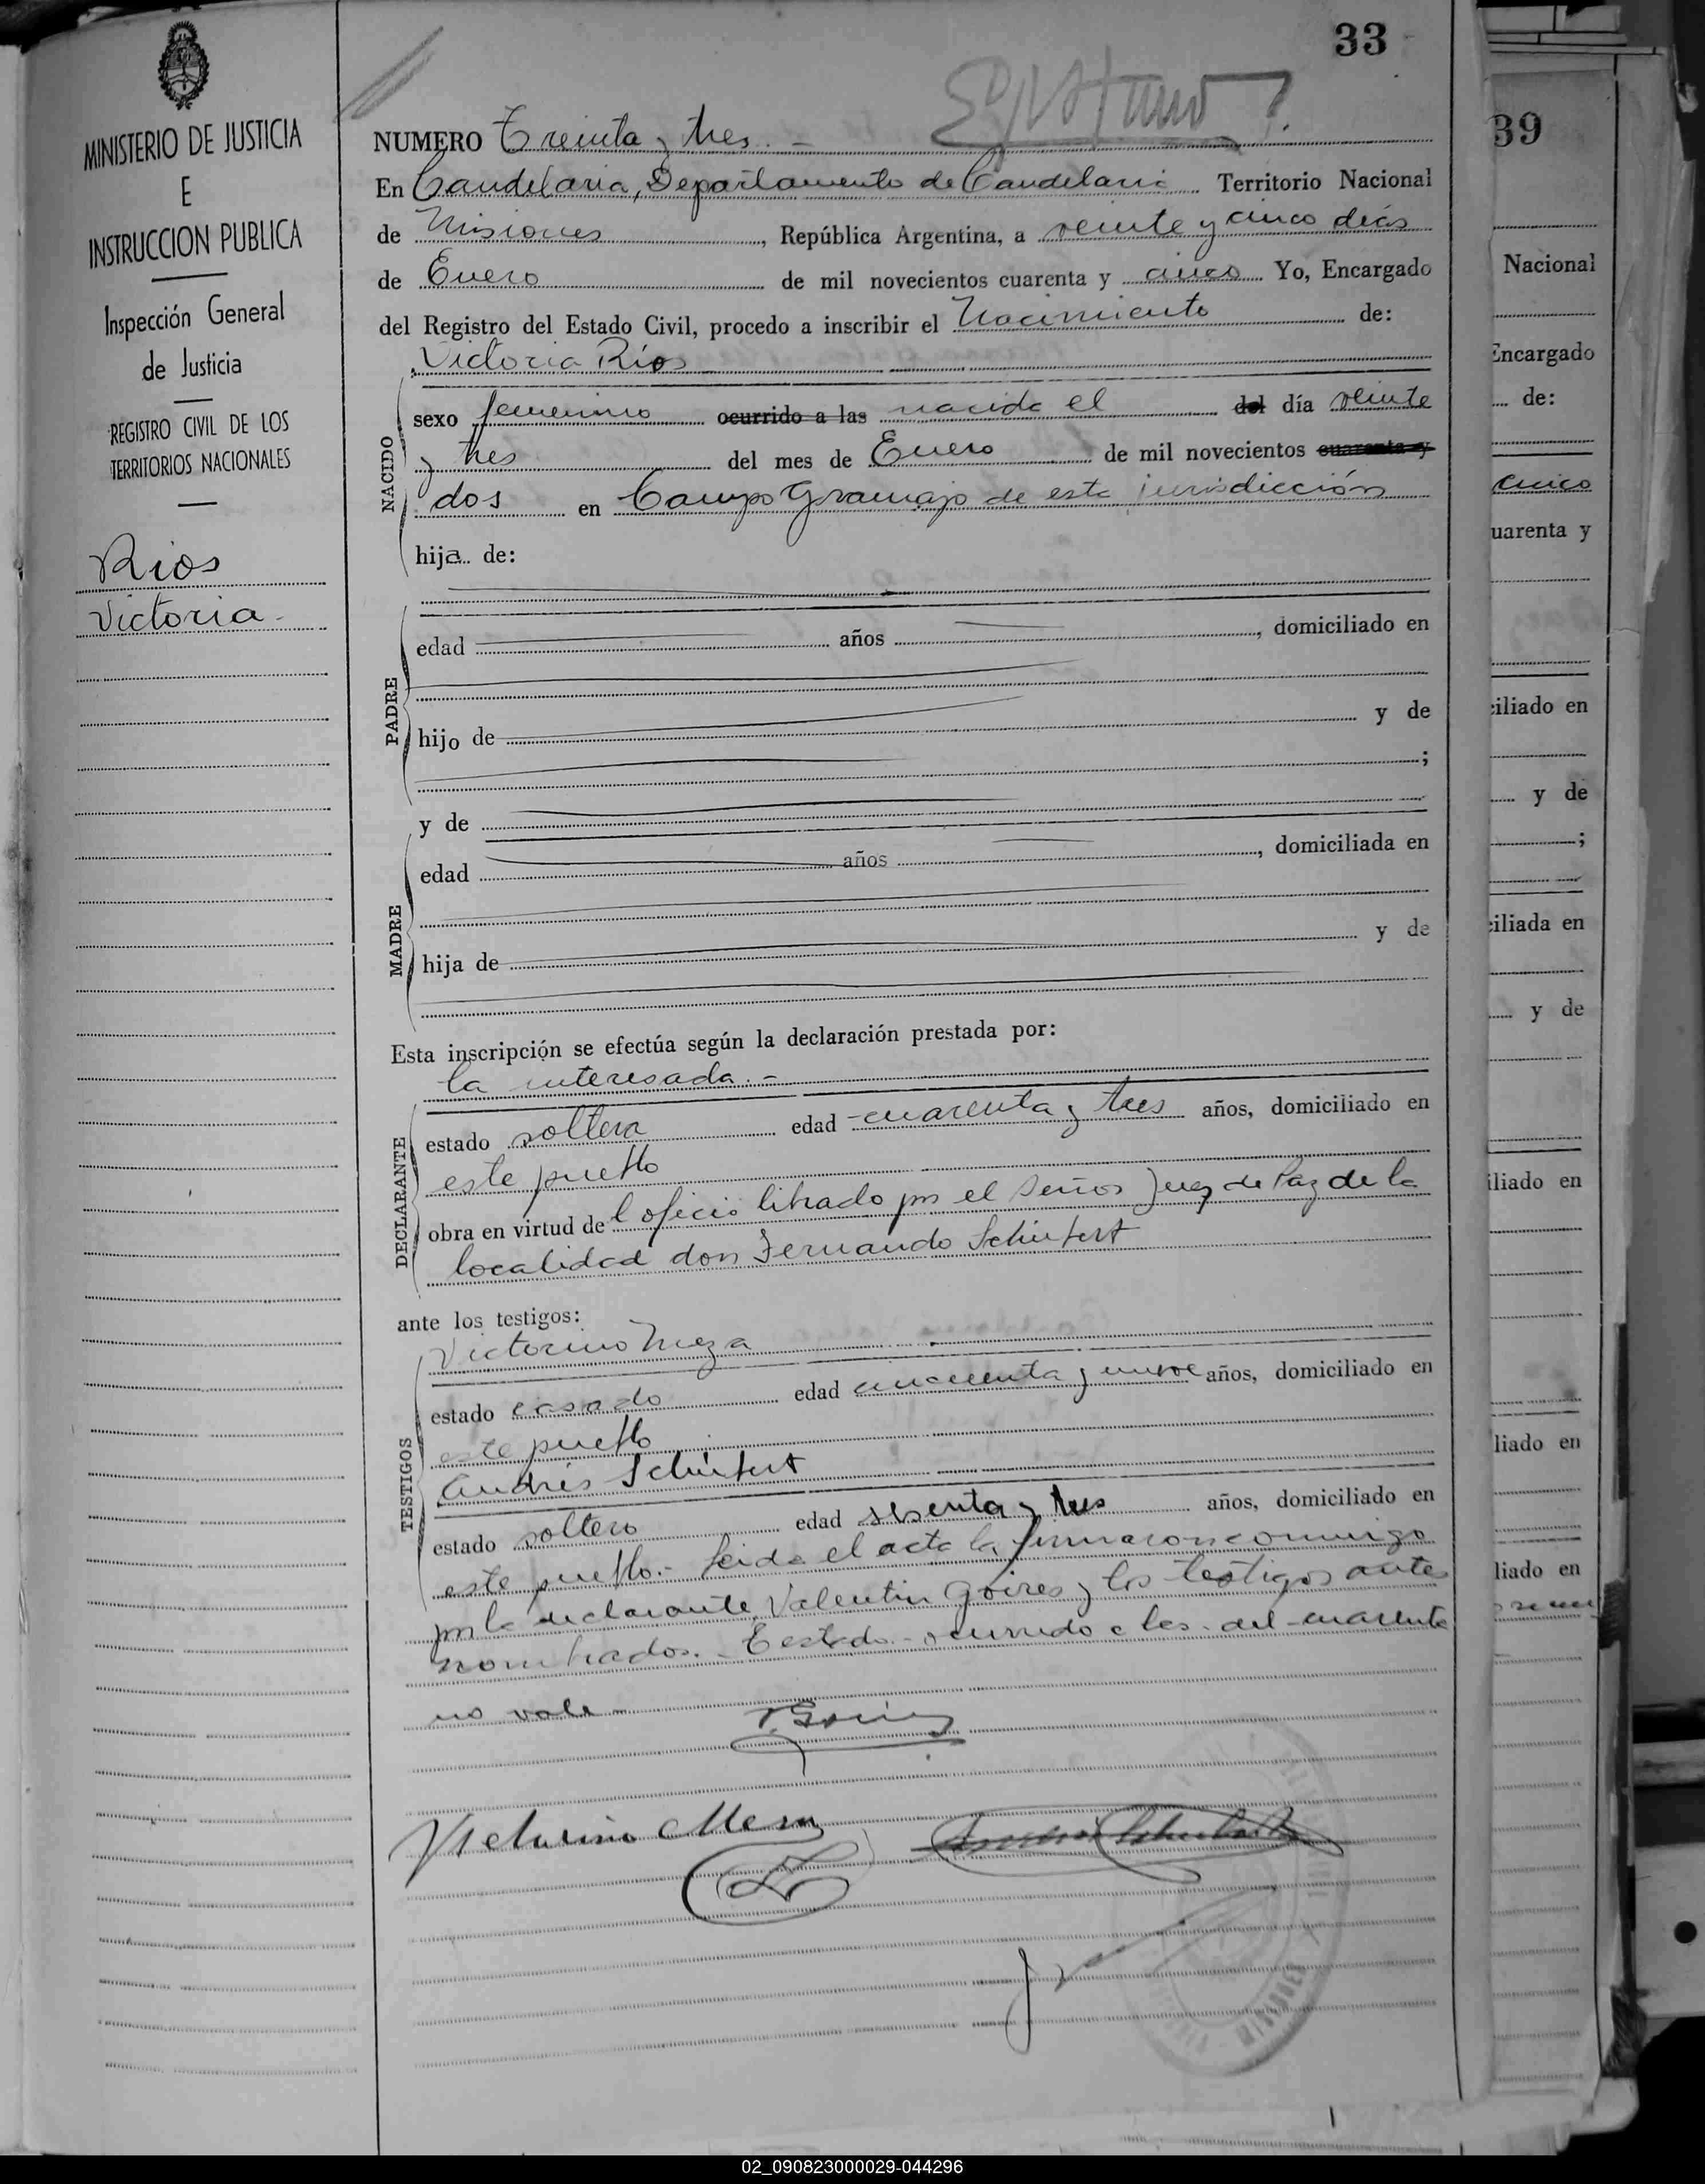 33
MINISTERIO DE JUSTICIA
E
INSTRUCCION PUBLICA
Inspección General
de Justicia
REGISTRO CIVIL DE LOS
TERRITORIOS NACIONALES
Rios
Victoria.-
NUMERO Treinta y tres.-
En Candelaria, Departamento de Candelaria Territorio Nacional
de Misiones, República Argentina, a veinte y cinco días
de Enero de mil novecientos cuarenta y cinco Yo, Encargado
del Registro del Estado Civil, procedo a inscribir el Nacimiento de:
Victoria Ríos
NACIDO
sexo femenino ocurrido a las nacida el del día veinte
y tres del mes de Enero de mil novecientos cuarenta y
dos en Campo Gramajo de esta jurisdicción
hija de:
PADRE
edad años, domiciliado en
hijo de y de
;
y de
MADRE
edad años, domiciliada en
hija de y de
Esta inscripción se efectúa según la declaración prestada por:
la interesada.-
DECLARANTE
estado soltera edad cuarenta y tres años, domiciliado en
este pueblo
obra en virtud del oficio librado por el Señor Juez de Paz de la
localidad don Fernando
ante los testigos:
Victorino Meza
TESTIGOS
estado casado edad cincuenta y nueve años, domiciliado en
este pueblo
Andrés
estado soltero edad sesenta y tres años, domiciliado en
este pueblo.- Leida el acta la firmaron conmigo
por la declarante Valentin Goires y los testigos antes
nombrados.- Testado - ocurrido a las - del - cuarenta
no vale.-
Victorino Meza
39
Nacional
Encargado
de:
cinco
uarenta y
ciliado en
y de
;
ciliada en
y de
iliado en
liado en
liado en
02_090823000029-044296